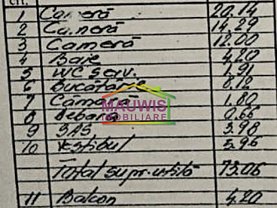 crt.
1 Cameră 20.14
2 Cameră 14.29
3 Cameră 12.00
4 Baie 4.20
5 WC serv. 1.91
6 Bucătărie
7 Cămară 1.80
8 Debara 0.66
9 SAS 3.90
10 Vestibul 5.96
Total supr. utilă 73.06
11 Balcon 4.20
MAUWIS
IMOBILIARE